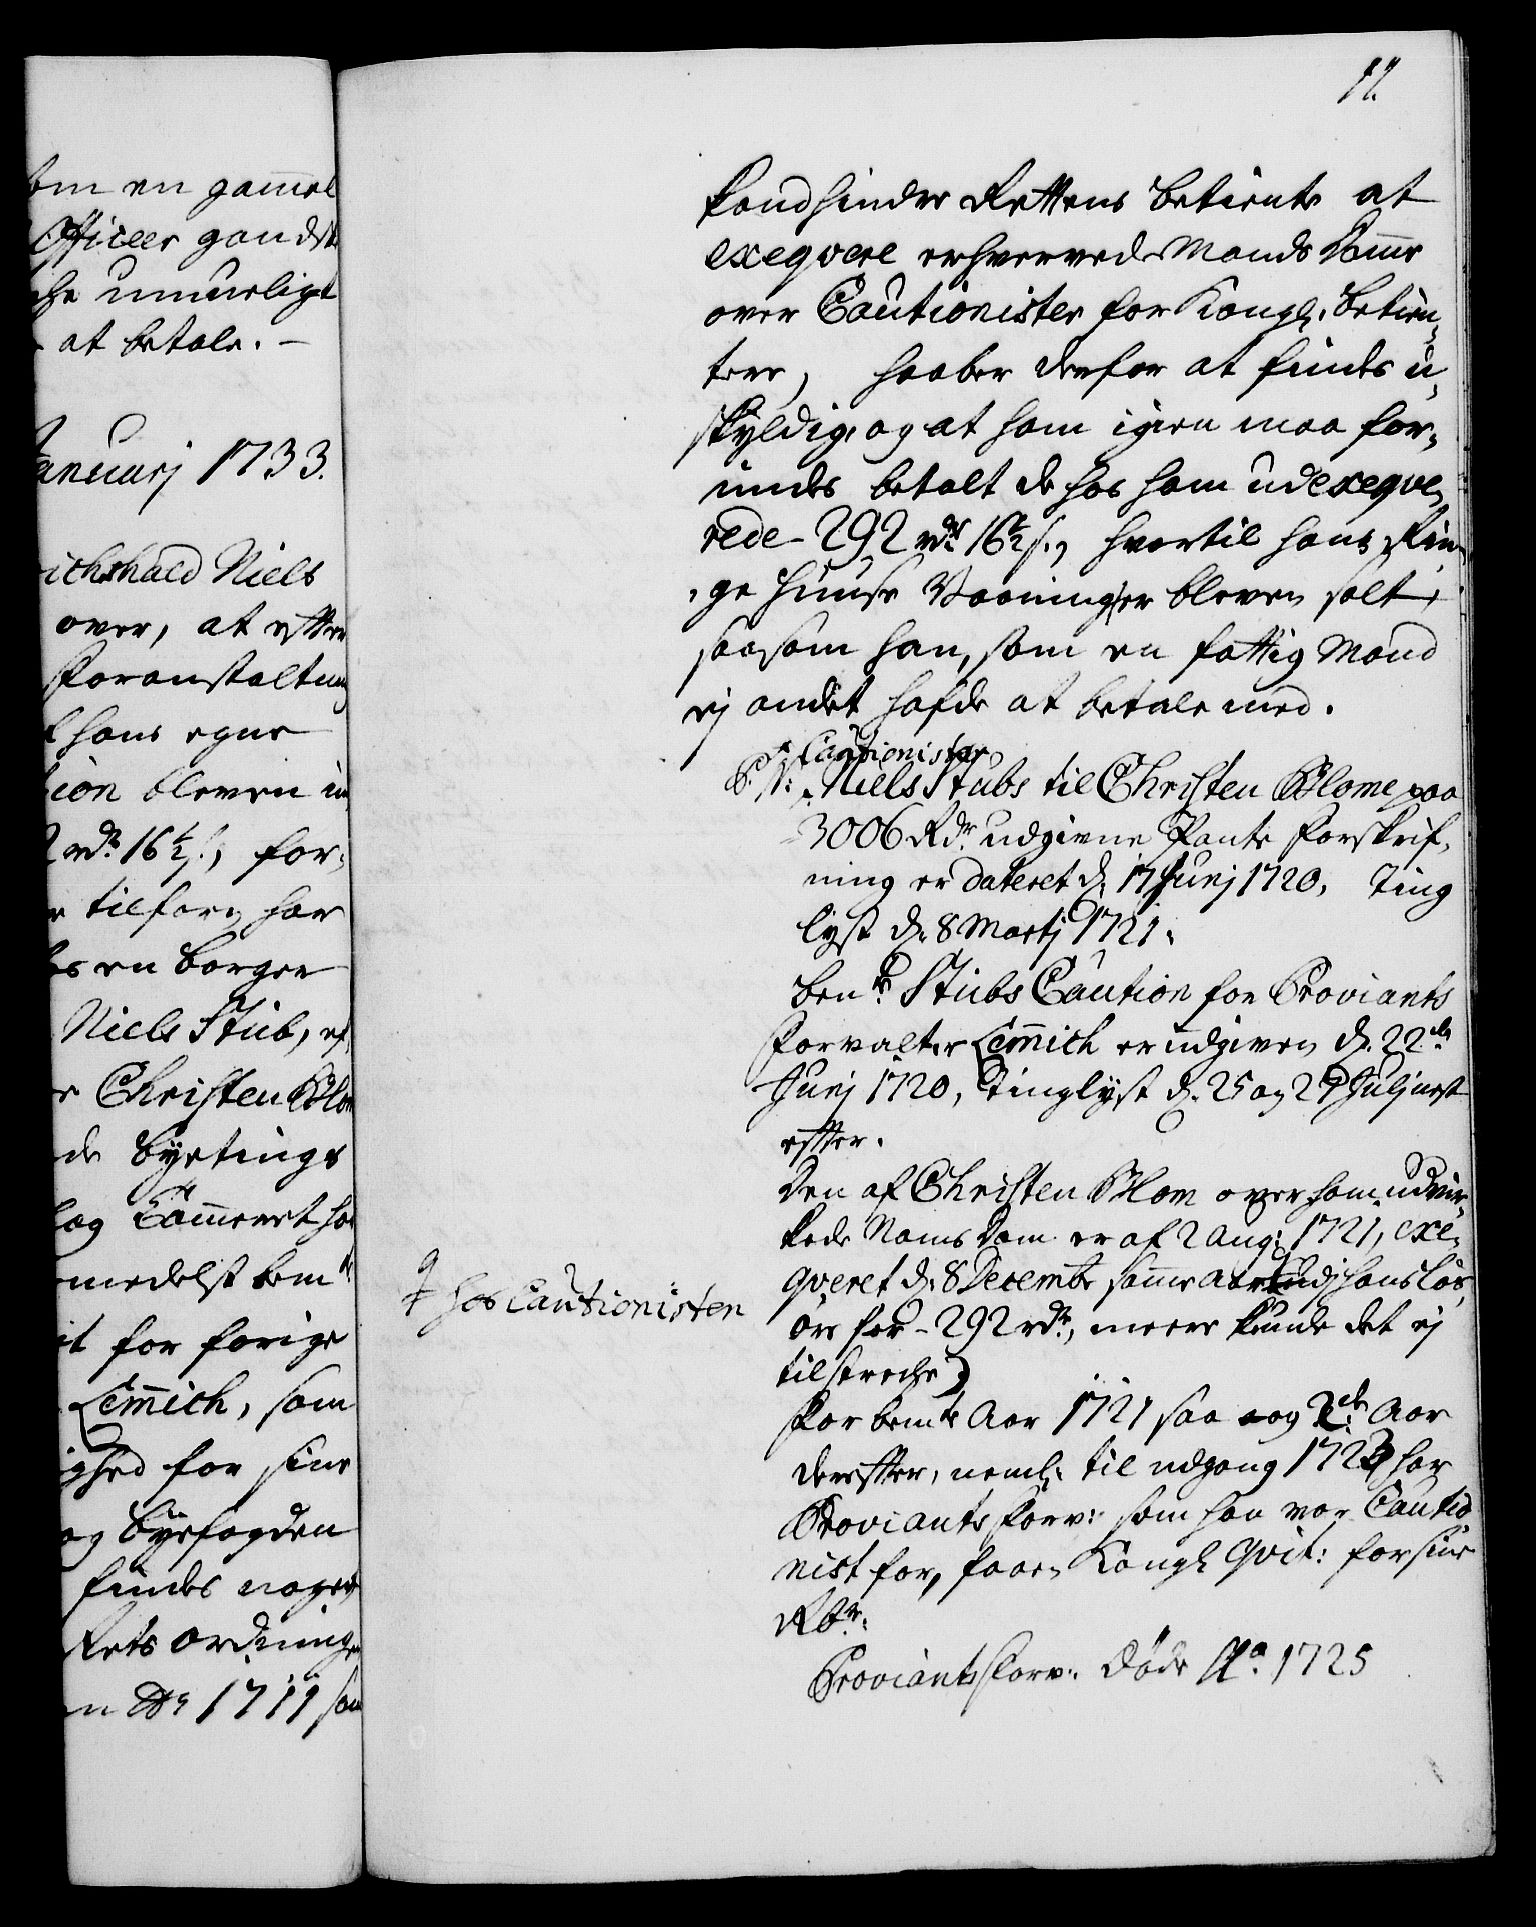 om en gammel
Officeer gandsk
he umueligt
at betale. –
Januarj 1733.
ichshald Niels
over, at efter
Foranstaltning
hans egne
tion bleven in
2 rdr 16½ s., for-
tilforn har
en Borger
Niels Stub, ef
Christen Blom
de Byetings
og Cammeret ha
medelst bemte
it for forige
Lemmich, som
ighed for sine
og Byefogden
findes nogen
Rets ordninge
n Ao 1719 som
11.
forhindre Rettens betiente at
exeqvere erhvervede Mands Domme
over Cautionister for Kongl: betien-
tere, haaber derfor at findes u-
skyldig, og at ham igien maa for-
undes betalt de hos ham udexeqve-
rede 292 rdr 16½ s., hvortil hans Rin-
ge Huuse Vaaninger bleven solt,
saasom han, som en fattig Mand
ej andet hafde at betale med.
P. N: Cautionister
Niels Stubs til Christen Blome paa
3006 Rdr. udgivne Pante Forskrif-
ning er dateret d. 17 Junj 1720, Ting
lyst d. 8 Martj 1721.
bente Stubs Caution for Proviants
Forvalter Lemmich er udgiven d. 22de
Junj 1720, Tinglyst d. 25 og 29 Julj nest
efter.
Den af Christen Blom over ham udvir-
kede Nams Dom er af 2 Aug: 1721, exe-
qveret d. 8 Decembr samme Aar udj hans Løs-
øre for - 292 rdr, meere kunde det ej
tilstreche)
† hos Cautionisten
For bemte Aar 1721 saa og 2de Aar
derefter, neml: til udgang 1723 har
Proviants Forv: som han var Cautio
nist for, faaen Kongl Qvit: for sine
Rgr:
Proviants Forv: døde Ao. 1725